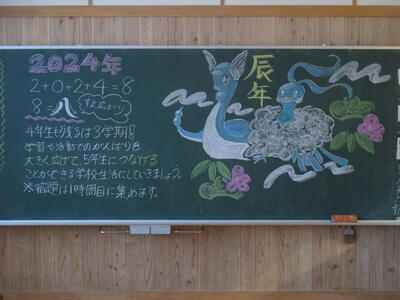 2024年
2+0+2+4=8
8=八 すえ広がり
4年生も残るは3学期!!
学習や活動でのがんばりを
大きく広げて、5年生につなげる
ことができる学校生活にしていきましょう。
※宿題は1時間目に集めます。
辰年